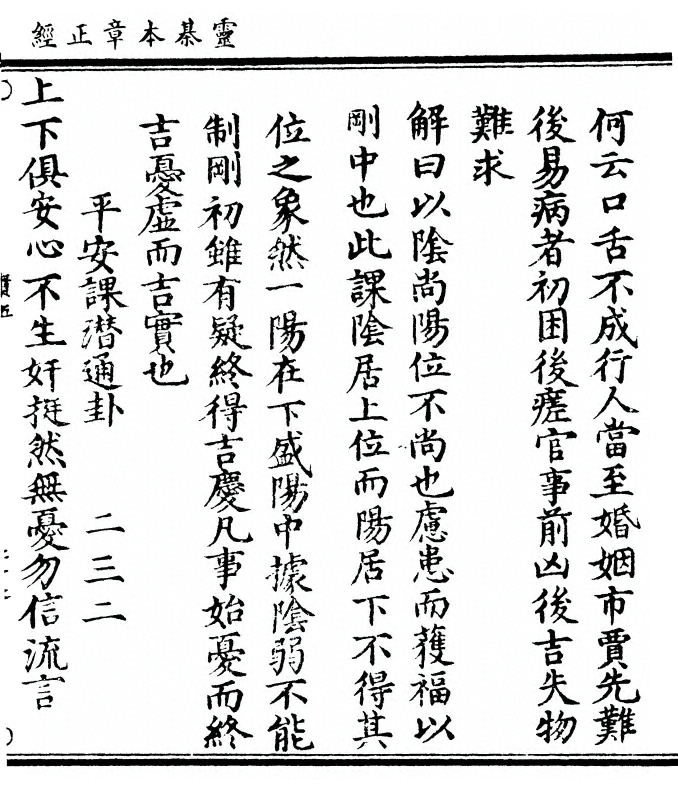 靈棊本章正經
何云口舌不成行人當至婚姻市賈先難
後易病者初困後瘥官事前凶後吉失物
難求
解曰以陰尚陽位不尚也慮患而獲福以
剛中也此課陰居上位而陽居下不得其
位之象然一陽在下盛陽中據陰弱不能
制剛初雖有疑終得吉慶凡事始憂而終
吉憂虛而吉實也
平安課潛通卦 二三二
上下俱安心不生奸挺然無憂勿信流言